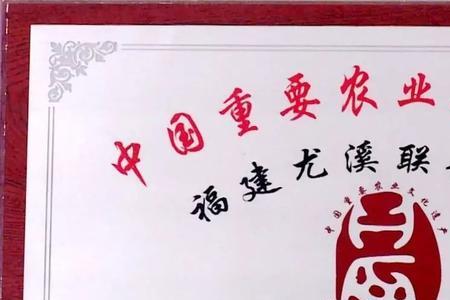 中国重要农业
福建尤溪联
中国重要农业文化遗产